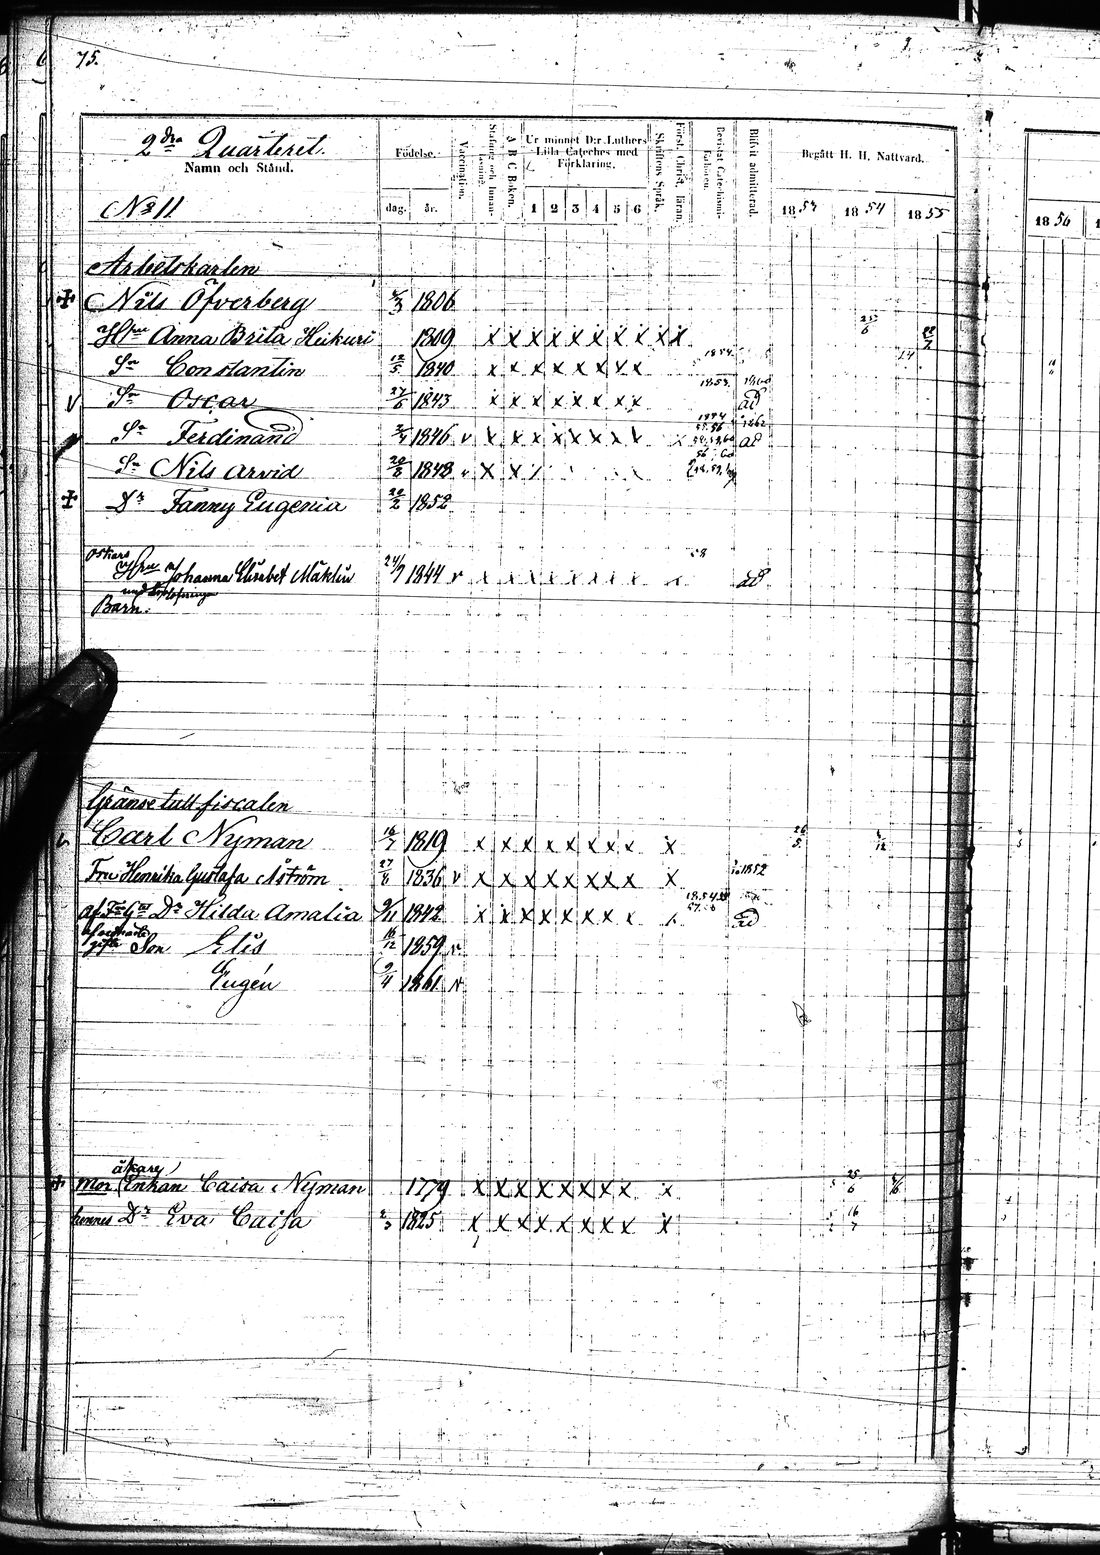 75.
2dra Quarteret.
Namn och Stånd.
No 11
Födelse.
dag. år.
Vaccination.
Stafning och Innan-läsning.
A B C Boken.
Ur minnet D:r Luthers Lilla Cateches med Förklaring.
1 2 3 4 5 6
Skriftens Språk.
Först. Christ. läran.
Bevistat Catechismi-
Blifvit admitterad.
Begått H. H. Nattvard.
1853 1854 1855
1856
Arbetskarlen
Nils Öfverberg 1806
Hru Anna Brita Heikuri 1809 x x x x x x x x x x
Sn Constantin 12/5 1840 x x x x x x x x
Sn Oscar 27/6 1843 x x x x x x x x ad
Sn Ferdinand 1846 v x x x x x x x x x ad
Sn Nils Arvid 20/8 1848 v x x
Dr Fanny Eugenia 20/2 1852
Oskars
Hru Johanna Elisabet Mäklin 24/9 1844 v x x x x x x x x x ad
Barn:
Gränse tull fiscalen
Carl Nyman 16/7 1819 x x x x x x x x x
Fru Henrika Gustafa Åström 27/8 1836 v x x x x x x x x x 1852
af Fru Gm Dr Hilda Amalia 9/11 1842 x x x x x x x x ad
Son Elis 16/12 1859 v
Eugén 9/4 1861 v
åkare
Mor Enkan Caisa Nyman 1779 x x x x x x x x x
hennes Dr Eva Caisa 2/3 1825 x x x x x x x x x